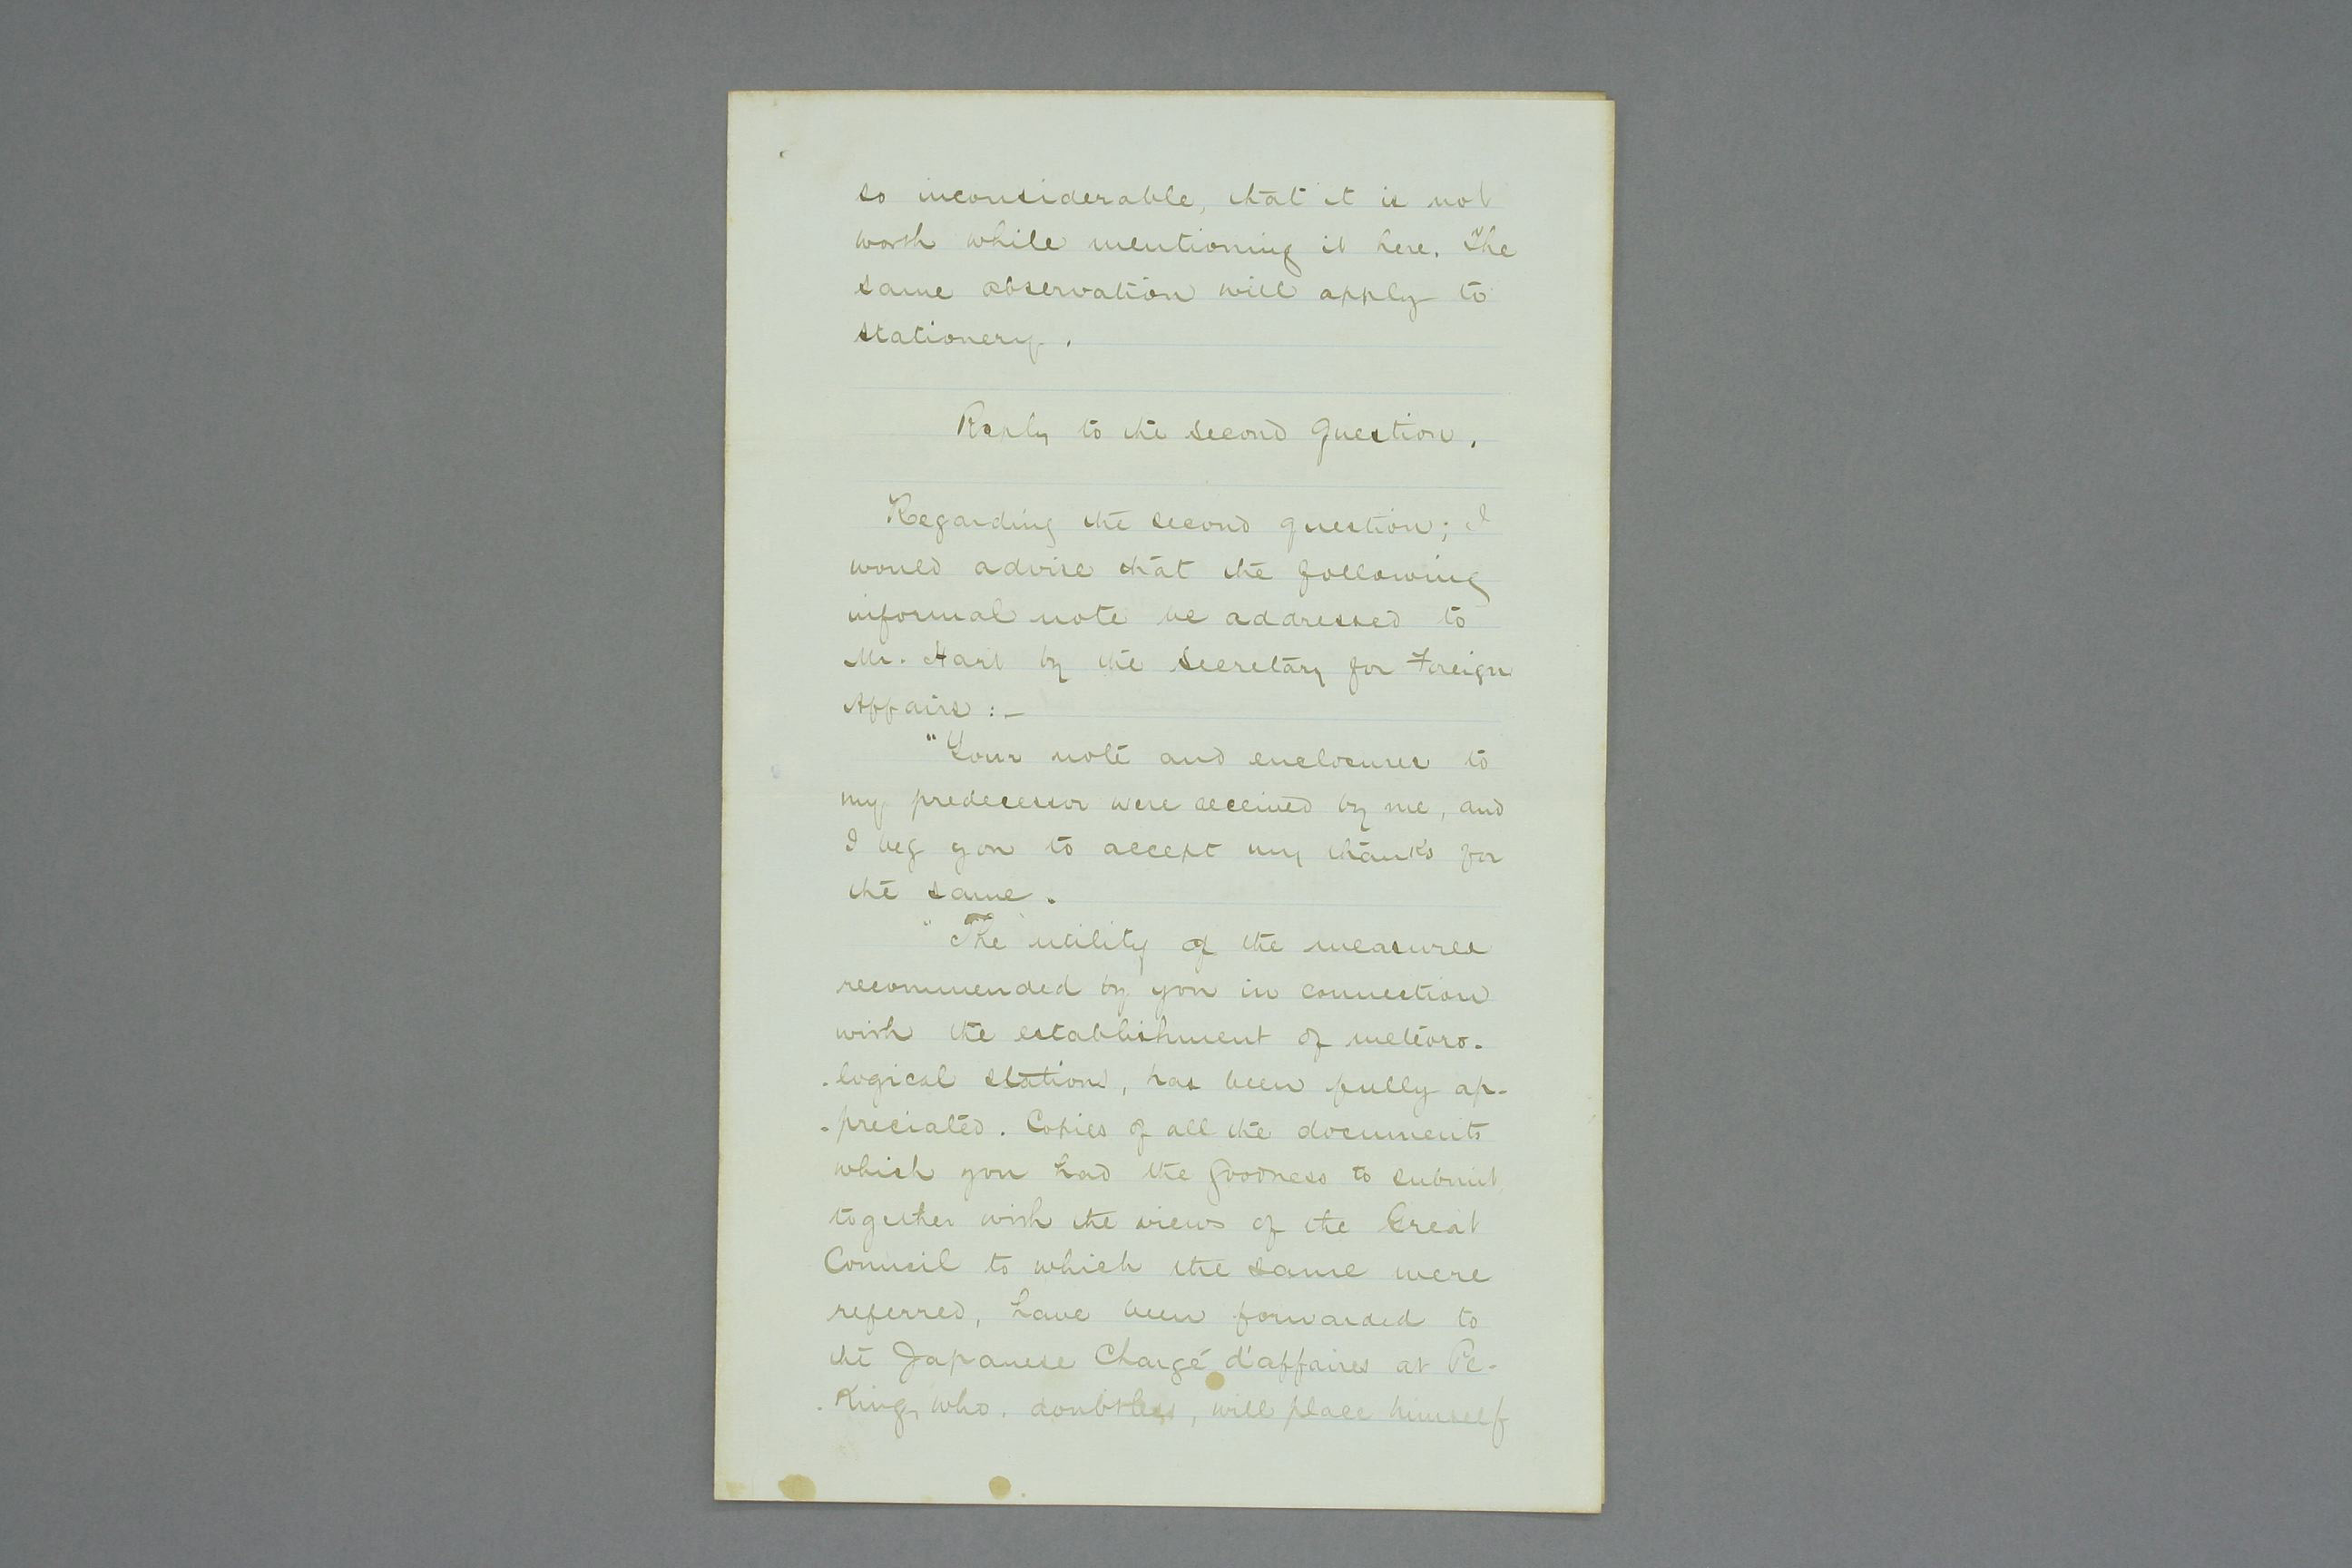 so inconsiderable, that it is not
worth while mentioning it here. The
same observation will apply to
stationery.
Reply to the second Question.
Regarding the second question; I
would advise that the following
informal note be addressed to
Mr. Hart by the Secretary for Foreign
Affairs:—
"Your note and enclosures to
my predecessor were received by me, and
I beg you to accept my thanks for
the same.
"The utility of the measures
recommended by you in connection
with the establishment of meteoro-
-logical stations, has been fully ap-
-preciated. Copies of all the documents
which you had the goodness to submit
together with the views of the Great
Council to which the same were
referred, have been forwarded to
the Japanese Chargé d'affaires at Pe-
-King, who, doubtless, will place himself